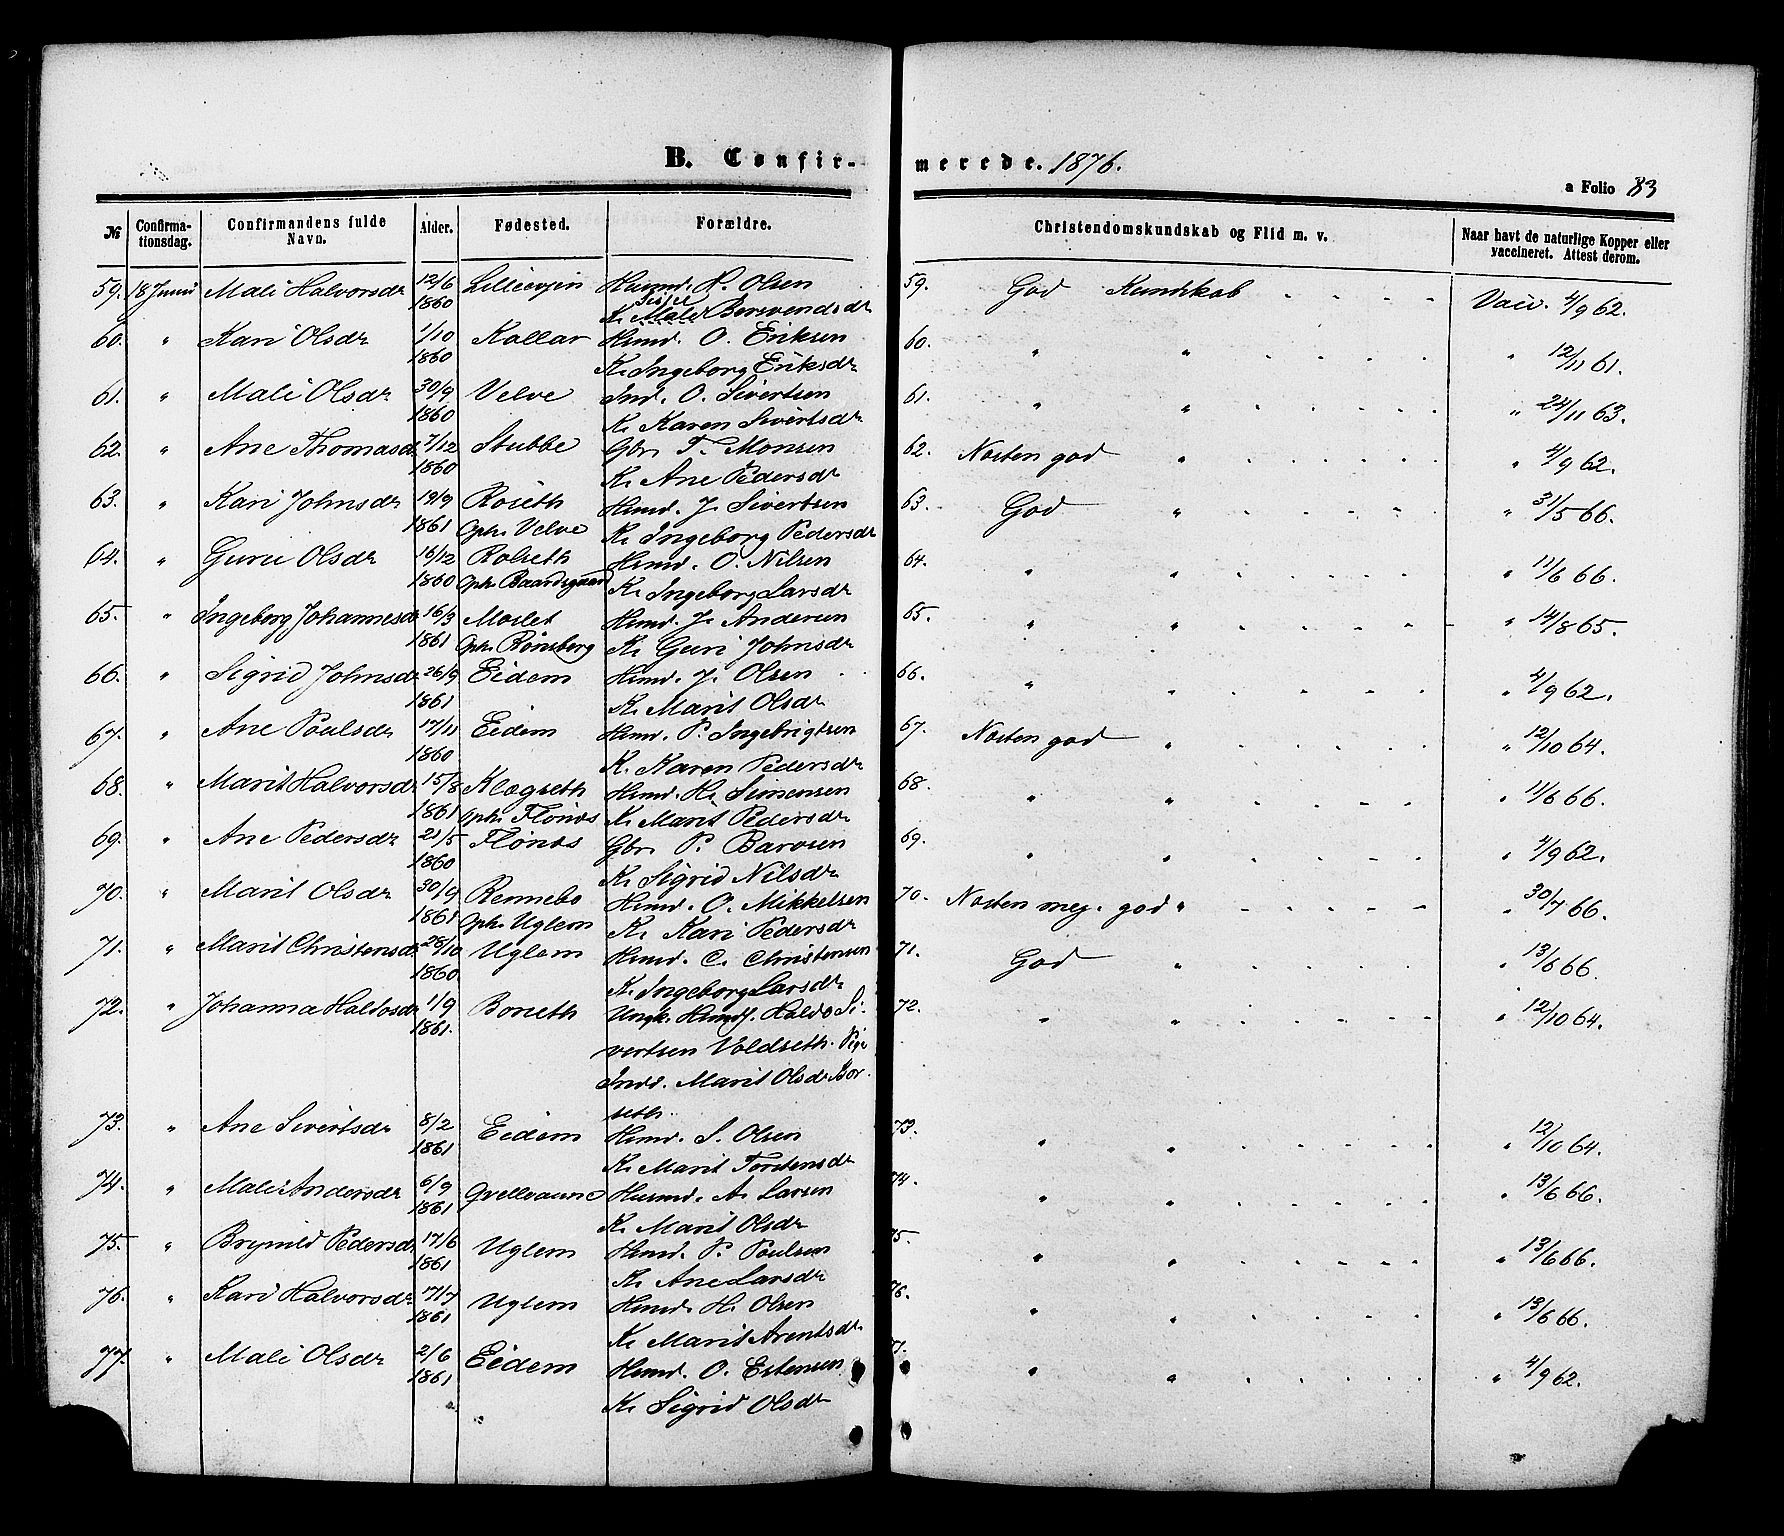 B. Confirmerede. 1876.
a Folio 83
№ Confirmationsdag. Confirmandens fulde Navn. Alder. Fødested. Forældre. Christendomskundskab og Flid m. v. Naar havt de naturlige Kopper eller vaccineret. Attest derom.
59. 18 Juni Mali Halvorsdr 12/6 Husmd. H. Olsen 59. God Kundskab Vacc. 4/9 62.
1860 K. Berevendsdr
60. " Kari Olsdr 1/10 Kallar Husmd. O. Eriksen 60. " " " 12/11 61.
1860 K. Ingeborg Eriksdr
61. " Mali Olsdr 30/9 Velve Ind. O. Sivertsen 61. " " " 24/11 63.
1860 K. Karen Sivertsdr
62. " Ane Thomasdr 7/12 Stubbe Gbr. T. Monsen 62. Næsten god " " 4/9 62.
1860 K. Ane Pedersdr
63. " Kari Johnsdr 19/9 Roseth Husmd. J. Sivertsen 63. God " " 31/5 66.
1861 Oph. Velve K. Ingeborg Pedersdr
64. " Guru Olsdr 16/12 Rolseth Husmd. O. Nilsen 64. " " " 11/6 66.
1860 Oph. Baardsgaard K. Ingeborg Larsdr
65. " Ingeborg Johannesdr 16/3 Moslet Husmd. J. Andersen 65. " " " 14/8 65.
1861 Oph. Rønsberg K. Guri Johnsdr
66. " Sigrid Johnsdr 26/9 Eidem Husmd. J. Olsen 66. " " " 4/9 62.
1861 K. Marit Olsdr
67. " Ane Paulsdr 17/11 Eidem Husmd. P. Ingebrigtsen 67. Næsten god " " 12/10 64.
1860 K. Karen Pedersdr
68. " Marit Halvorsdr 15/8 Klegseth Husmd. H. Simensen 68. " " " 11/6 66.
1861 Oph. Flønes K. Marit Pedersdr
69. " Ane Pedersdr 21/5 Flønes Gbr. P. Barosen 69. " " " 4/9 62.
1860 K. Sigrid Nilsdr
70. " Marit Olsdr 30/9 Rennebo Husmd. O. Mikkelsen 70. Næsten meg. god " " 30/7 66.
1861 Oph. Uglem K. Kari Pedersdr
71. " Marit Christensdr 28/10 Uglem Husmd. C. Christensen 71. God " " 13/6 66.
1860 K. Ingeborg Larsdr
72. " Johanna Haldosdr 1/9 Borseth Ungk. Husmd. Haldo Si- 72. " " " 12/10 64.
1861. vertsen Voldseth. Pige
Ind. Marit Olsdr Bor-
seth.
73. " Ane Sivertsdr 8/2 Eidem Husmd. S. Olsen 73. " " " 12/10 64.
1861 K. Marit Torstensdr
74. " Mali Andersdr 6/9 Gvellvaune Husmd. A. Larsen 74. " " " 13/6 66.
1861 K. Marit Olsdr
75. " Brynild Pedersdr 17/6 Uglem Husmd. P. Paulsen 75. " " " 13/6 66.
1861 K. Ane Larsdr
76. " Kari Halvorsdr 7/7 Uglem Husmd. H. Olsen 76. " " " 13/6 66.
1861 K. Marit Arentsdr
77. " Mali Olsdr 2/6 Eidem Husmd. O. Estensen " " " 4/9 62.
1861 K. Sigrid Olsdr